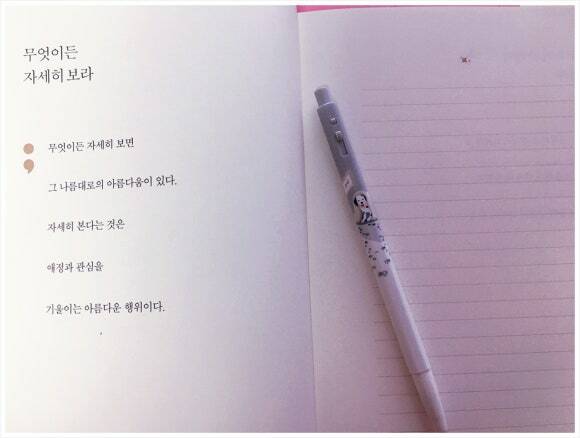 무엇이든
자세히 보라
무엇이든 자세히 보면
그 나름대로의 아름다움이 있다.
자세히 본다는 것은
애정과 관심을
기울이는 아름다운 행위이다.